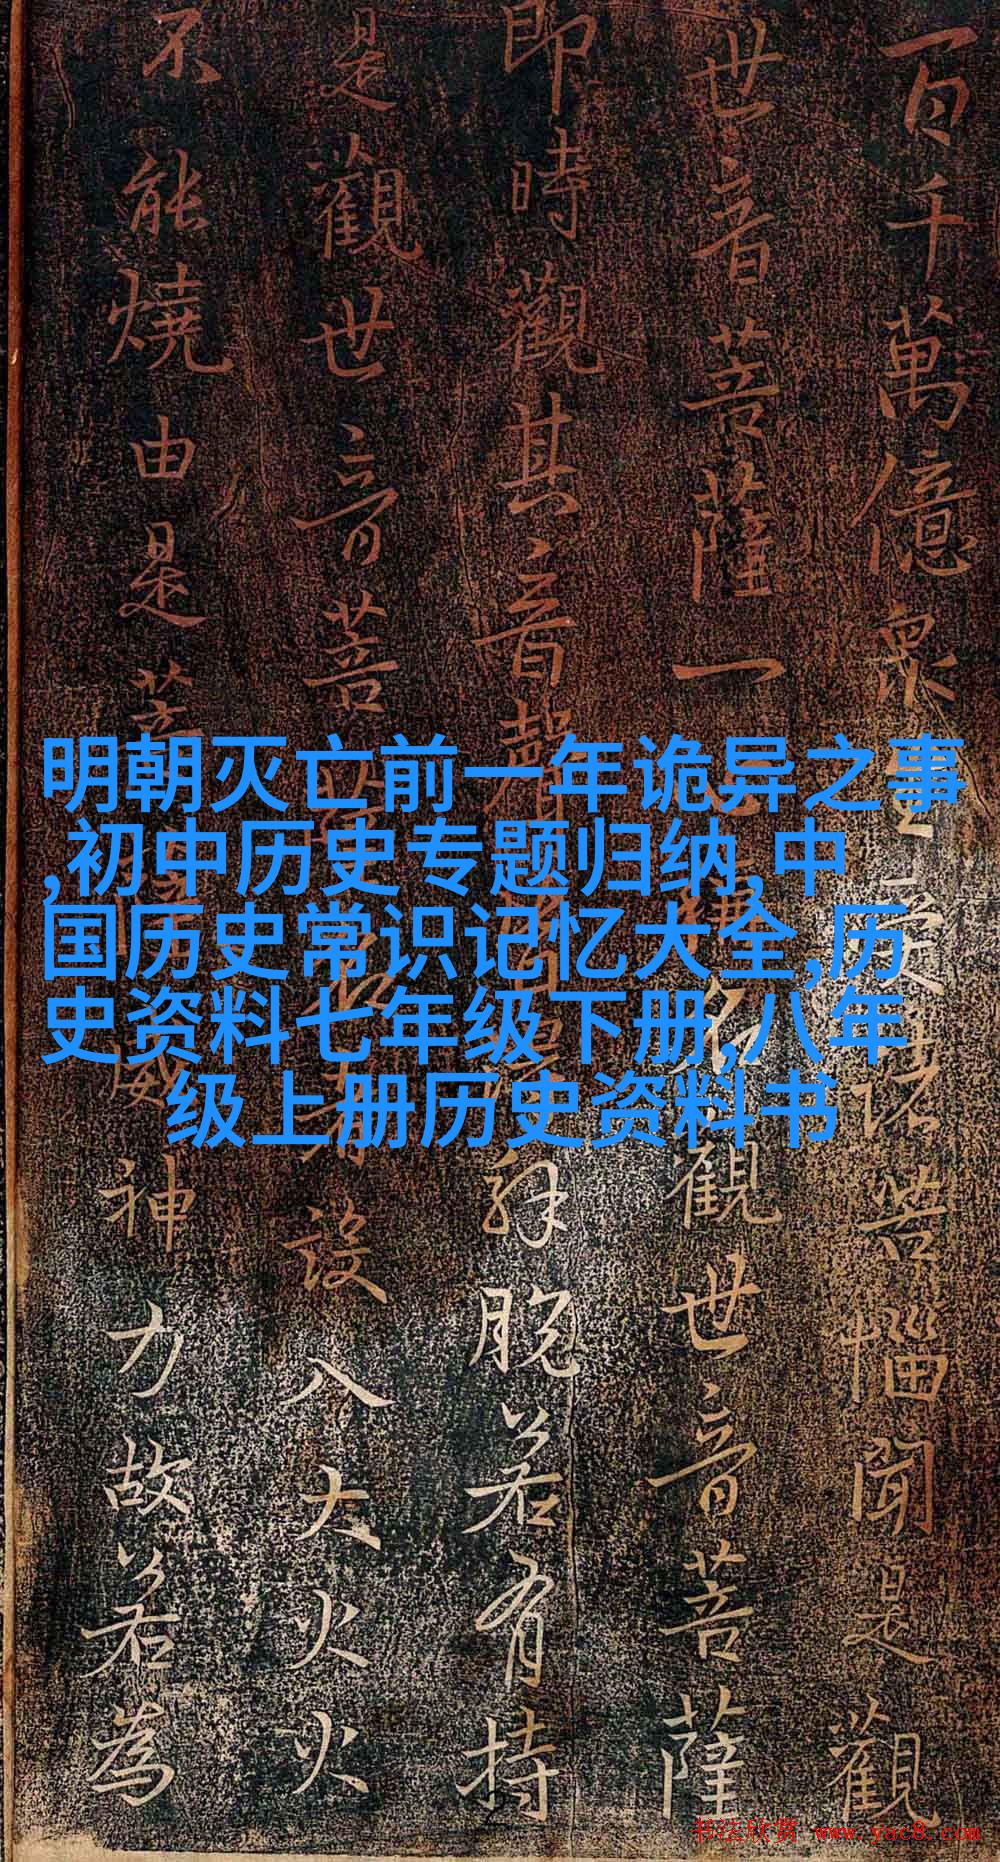 百千萬億眾生受諸苦惱聞是觀
世音菩薩一心稱名觀世音菩薩
即時觀其音聲皆得解脫若有持
是觀世音菩薩名者設入大火火
不能燒由是菩薩威神力故若為
明朝灭亡前一年诡异之事
,初中历史专题归纳,中
国历史常识记忆大全,历
史资料七年级下册,八年
级上册历史资料书
书法欣赏 www.yac8.com